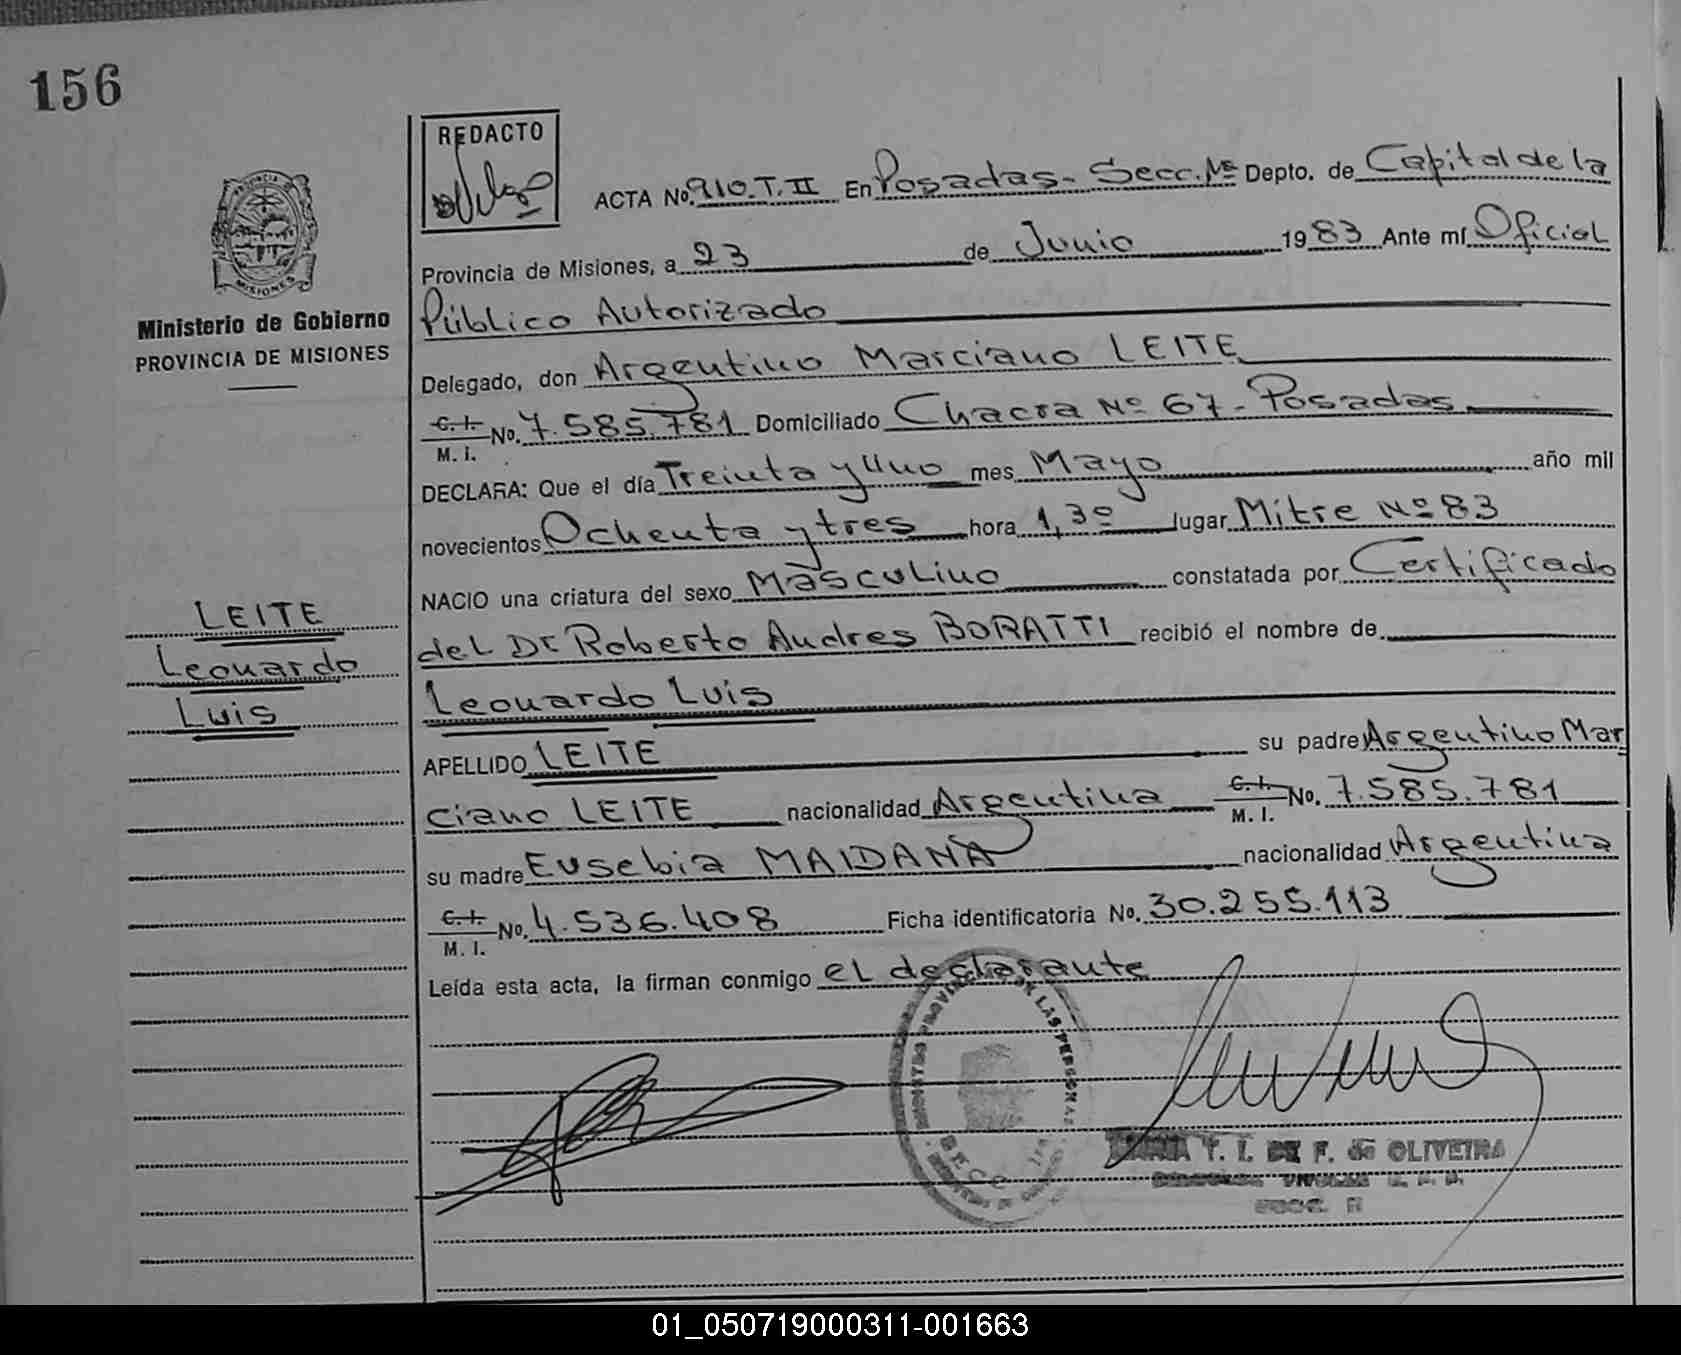 156
REDACTO
ACTA No. 910.T.II En Posadas - Secc. Nª Depto. de Capital de la
Provincia de Misiones, a 23 de Junio 1983 Ante mí Oficial
Público Autorizado
Delegado, don Argentino Marciano LEITE
C. I. No. 7.585.781 Domiciliado Chacra Nº 67 - Posadas
M. I.
DECLARA: Que el día Treinta y Uno mes Mayo año mil
novecientos Ochenta y tres hora 1,30 lugar Mitre Nº 83
NACIO una criatura del sexo Masculino constatada por Certificado
del Dr Roberto Andres BORATTI recibió el nombre de
Leonardo Luis
APELLIDO LEITE su padre Argentino Mar
ciano LEITE nacionalidad Argentina C. I. No. 7.585.781
M. I.
su madre Eusebia MAIDANA nacionalidad Argentina
C. I. No. 4.536.408 Ficha identificatoria No. 30.255.113
M. I.
Leída esta acta, la firman conmigo el declarante
PROVINCIA DE MISIONES
Ministerio de Gobierno
PROVINCIA DE MISIONES
LEITE
Leonardo
Luis
DE LAS PERSONAS
SECC
T. I. DE F. de OLIVEIRA
SECC. II
01_050719000311-001663